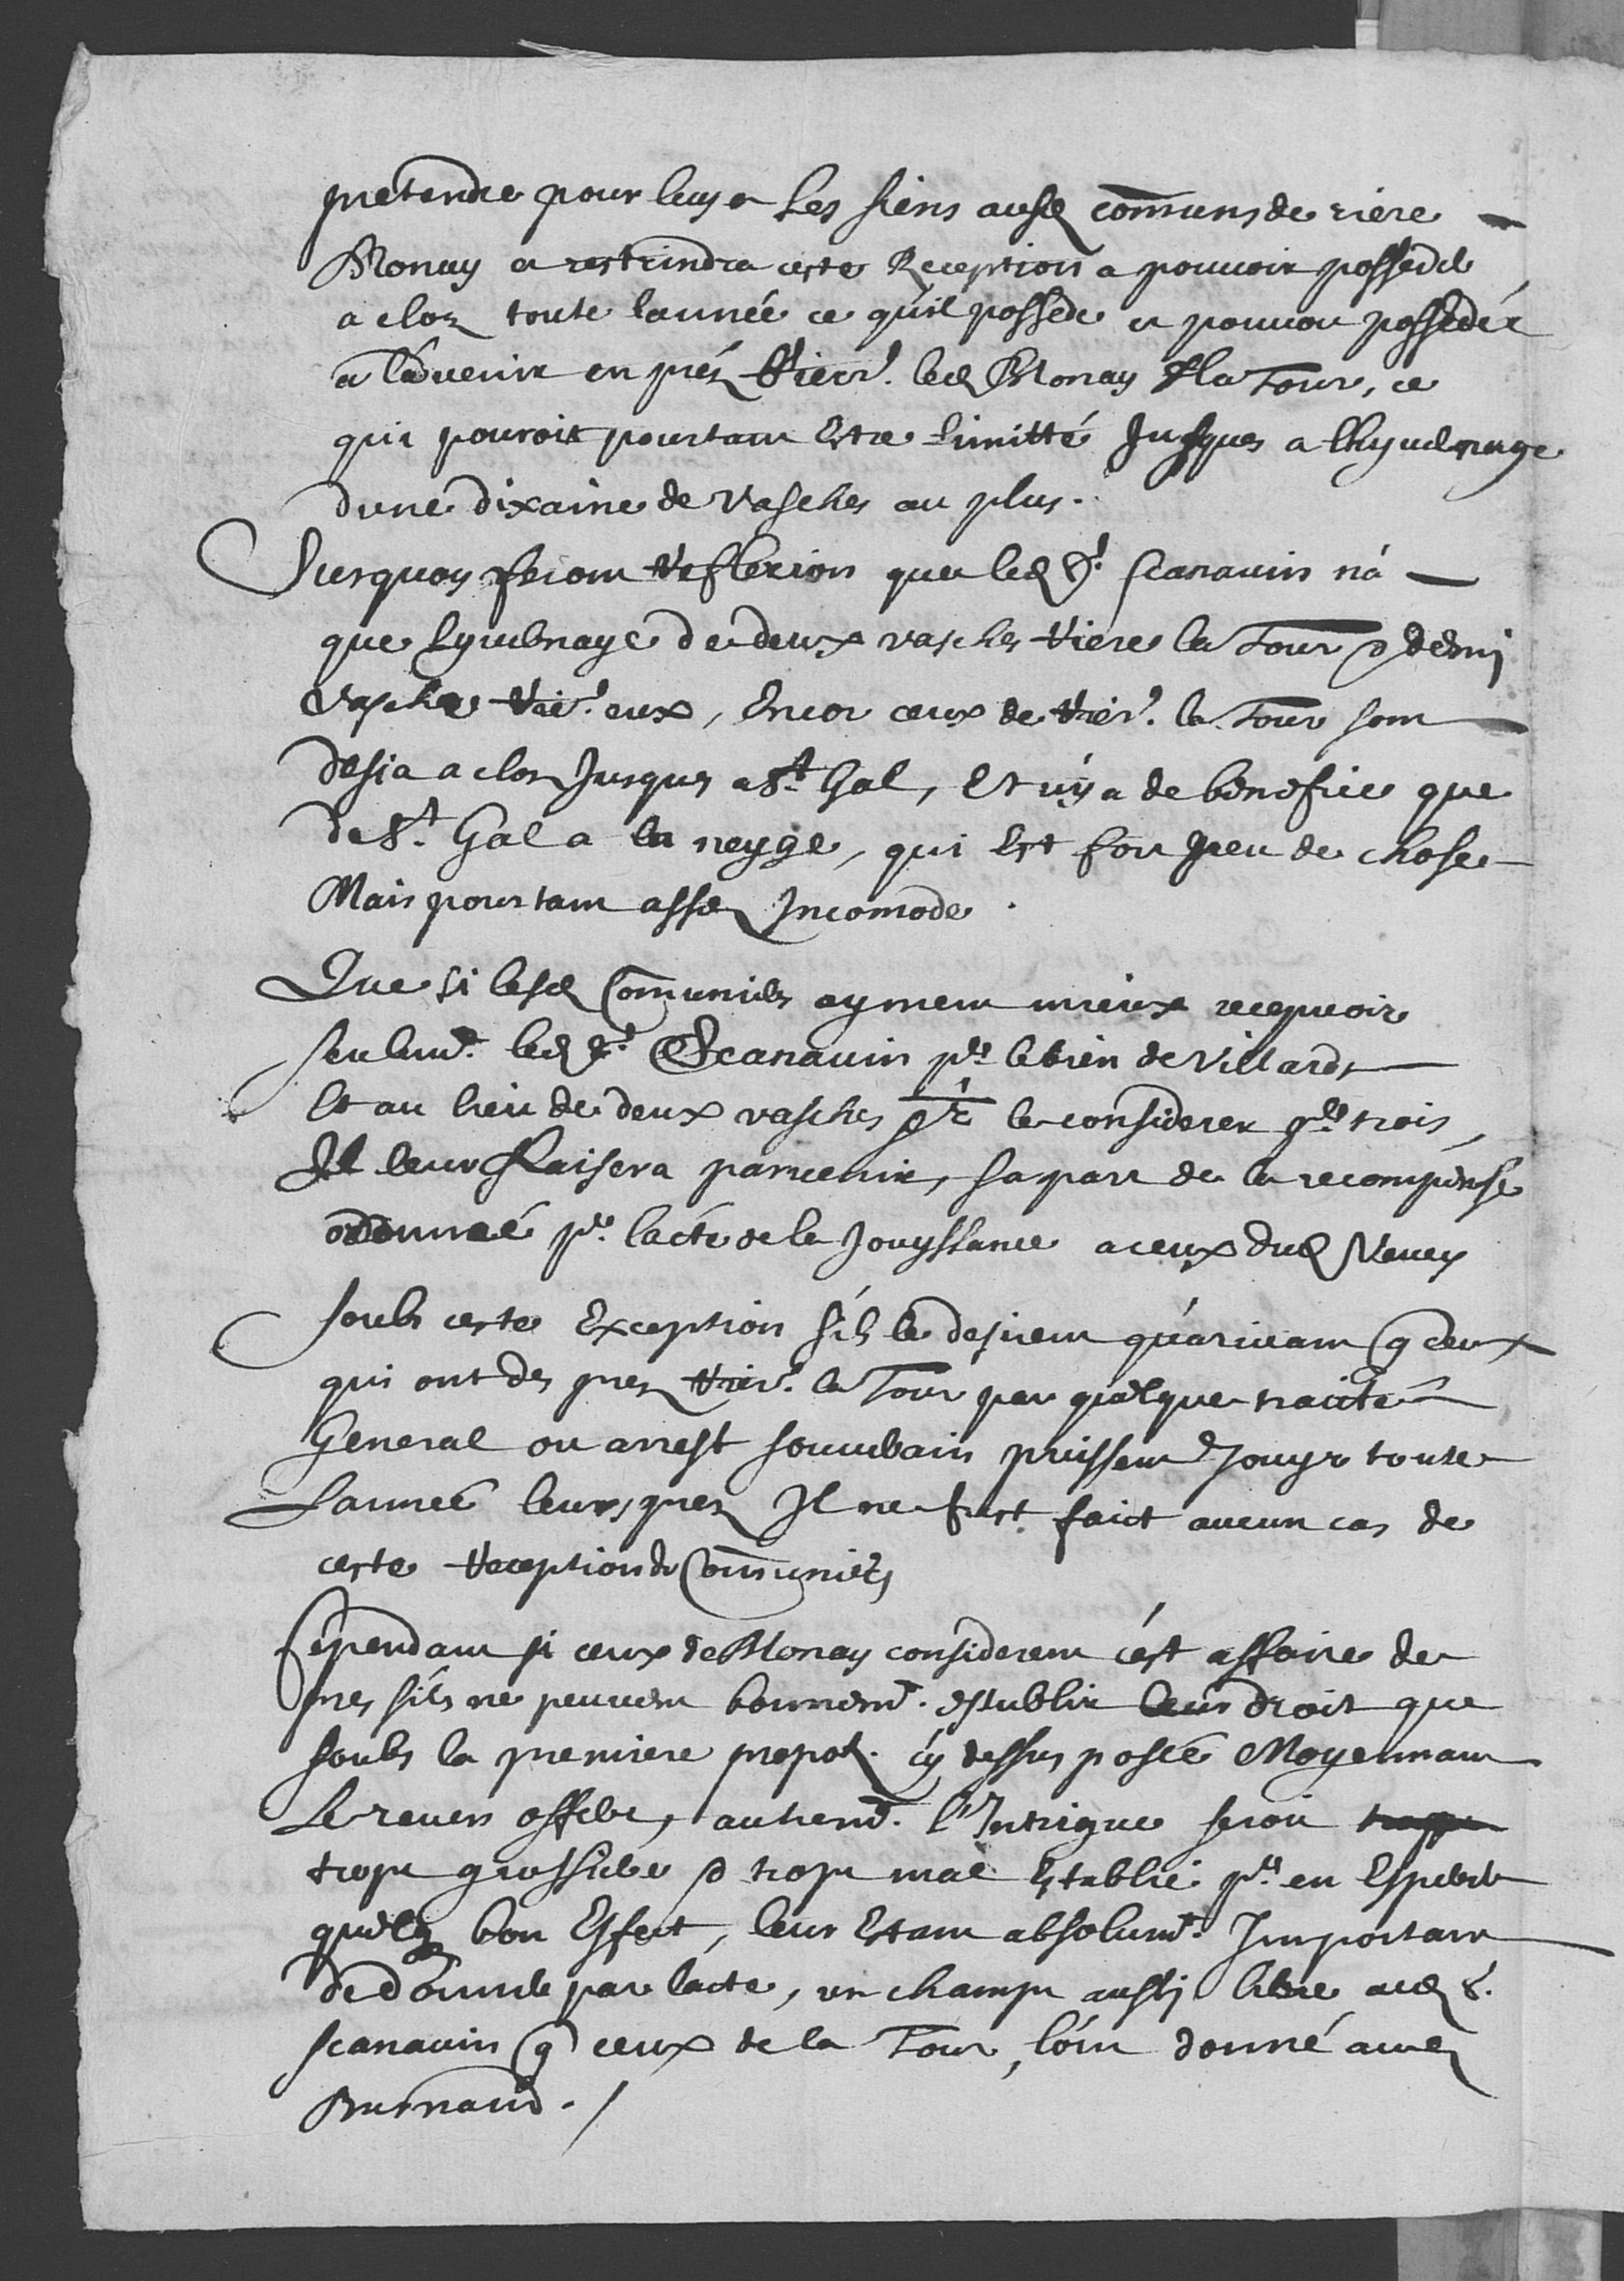 pretendre pour luy et les siens ausd communs de riere
Blonay et restrindra ceste Reception a pouvoir posseder
a cloz toute lannée ce qu'il possede et pourroit possedér
a l'advenir en préz Rier.e led Blonay & la Tour, ce
qui pouroit pourtant Estre limitté Jusques a lhyvernage
dune dixaine de vasches au plus.
Surquoy feront Reflexion que led Sr. Scanavin n'à
que lyvernage de deux vasches Riere la Tour & demi
vasche Rier.e eux, Encor ceux de Rier.e la Tour sont
desia a clos Jusques a St. Gal, Et n'y a de benefice que
de St. Gal a la neyge, qui Est fort peu de chose
Mais pourtant assez Incomode.
Que si lesd Comuniers ayment mieux recepvoir
seulemt. led Sr. Scanavin pr. le bien de Villard
Et au lieu de deux vasches le considerer pr. trois,
Il leur Laissera parvenir, sa part de la recompense
ordonneé pr. lacte de la Jouyssance a ceux dud Vevey
soubs ceste Exception s'ils le desirent qu'arrivant q ceux
qui ont des prez Rier.e la Tour par quelque traitté
General ou arrest souverain puissent Jouyr toute
Lanneé leurs prez Il ne fust faict aucun cas de
ceste Reception de Comuniers
Cependant si ceux de Blonay considerent c'est affaire de
pres s'ils ne peuvent bonnemt. establir leur droit que
soubs la premiere propos. cy dessus poseé Moyennant
Le revers offert, autremt. l'Intrigue seroit
trop grossiere & trop mal Establie pr. en Esperer
quelq bon Effect, leur Estant absolumt. Important
de donner par lacte, un champ aussi libre aud S.
scanavin q ceux de la Tour, l'ont donné au
Burnand. /